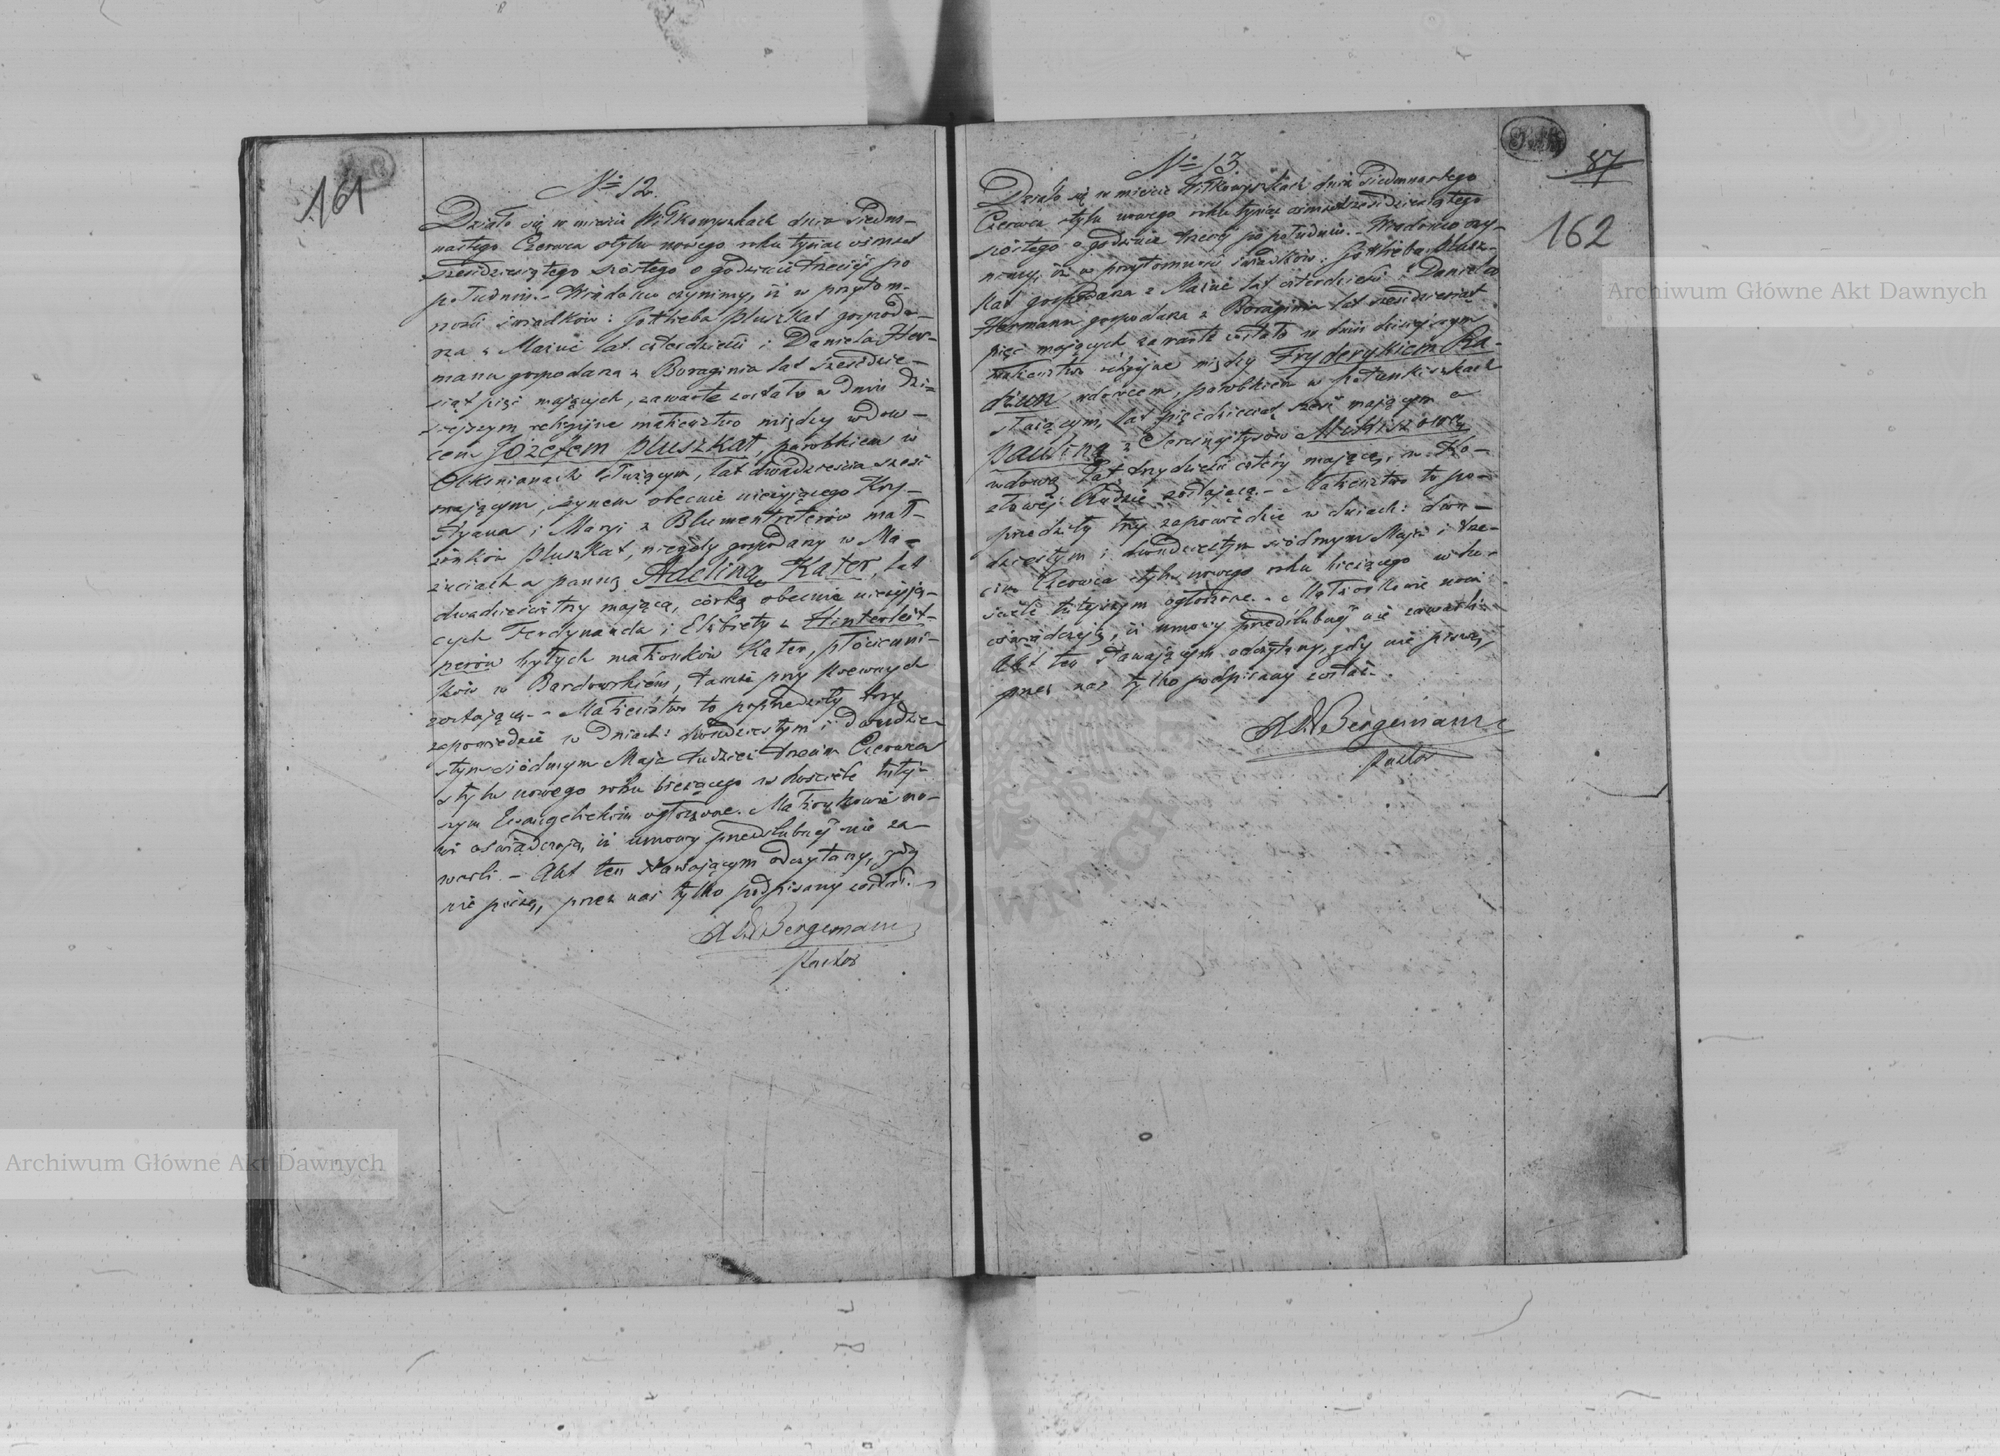 161
No 12.
Działo się w mieście Wiłkowyszkach dnia siedm-
nastego Czerwca stylu nowego roku tysiąc ośmset
sześdziesiątego szóstego o godzinie trzeciéj po
południu. - Wiadomo czynimy, iż w przytom-
ności świadków: Gottlieba Pluszkat gospoda-
rza z Mażuć lat czterdzieści i Daniela Her-
mann gospodarza z Boraginia lat sześdzie-
siąt pięć mających, zawarte zostało w dniu dzi-
siejszym religijne małżeństwo między wdow-
cem Józefem Pluszkat, parobkiem w
służącym, lat dwadzieścia sześć
mającym, synem obecnie nieżyjącego Kry-
styana i Maryi z Blumentreterów mał-
żonków Pluszkat, niegdy gospodarzy w Ma-
żuciach a panną Adeliną Kater, lat
dwadzieścia trzy mającą, córką obecnie nieżyją-
cych Ferdynanda i Elżbiety z Hinterleit-
nerów byłych małżonków Kater, płócienni-
ków w Bardowskiém, tamże przy krewnych
zostającą. - Małżeństwo to poprzedziły trzy
zapowiedzie w dniach: dwudziestym i dwudzie-
stym siódmym Maja tudzież trzecim Czerwca
stylu nowego roku bieżącego w kościele tutéj-
szym Ewangelickim ogłoszone. Małżonkowie no-
wi oświadczają, iż umowy przedślubnéj nie za-
warli. - Akt ten stawającym odczytany, gdy
nie piszą, przez nas tylko podpisany został.
Bergemann
Pastor
No 13
87
162
Działo się w mieście Wiłkowyszkach dnia siedmnastego
Czerwca stylu nowego roku tysiąc ośmset sześdziesiątego
szóstego o godzinie trzeciéj po południu. - Wiadomo czy-
nimy, iż w przytomności świadków: Gottlieba Plusz-
kat gospodarza z Mażuć lat czterdzieści i Daniela
Hermann gospodarza z Boraginia lat sześdziesiąt
pięć mających zawarte zostało w dniu dzisiejszym
małżeństwo religijne między Fryderykiem Ra-
dzun wdowcem, parobkiem w
służącym, lat pięćdziesiąt sześć mającym a
Pauliną z
wdową lat trzydzieści cztery mającą, w Ko-
złowéj Rudzie zostającą. - Małżeństwo to po-
przedziły trzy zapowiedzie w dniach: dwu-
dziestym i dwudziestym siódmym Maja i trze-
cim Czerwca stylu nowego roku bieżącego w ko-
ściele tutejszym ogłoszone. - Małżonkowie nowi
oświadczają, iż umowy przedślubnéj nie zawarli.
Akt ten stawającym odczytany, gdy nie piszą,
przez nas tylko podpisany został.
Bergemann
Pastor
Archiwum Główne Akt Dawnych
Archiwum Główne Akt Dawnych